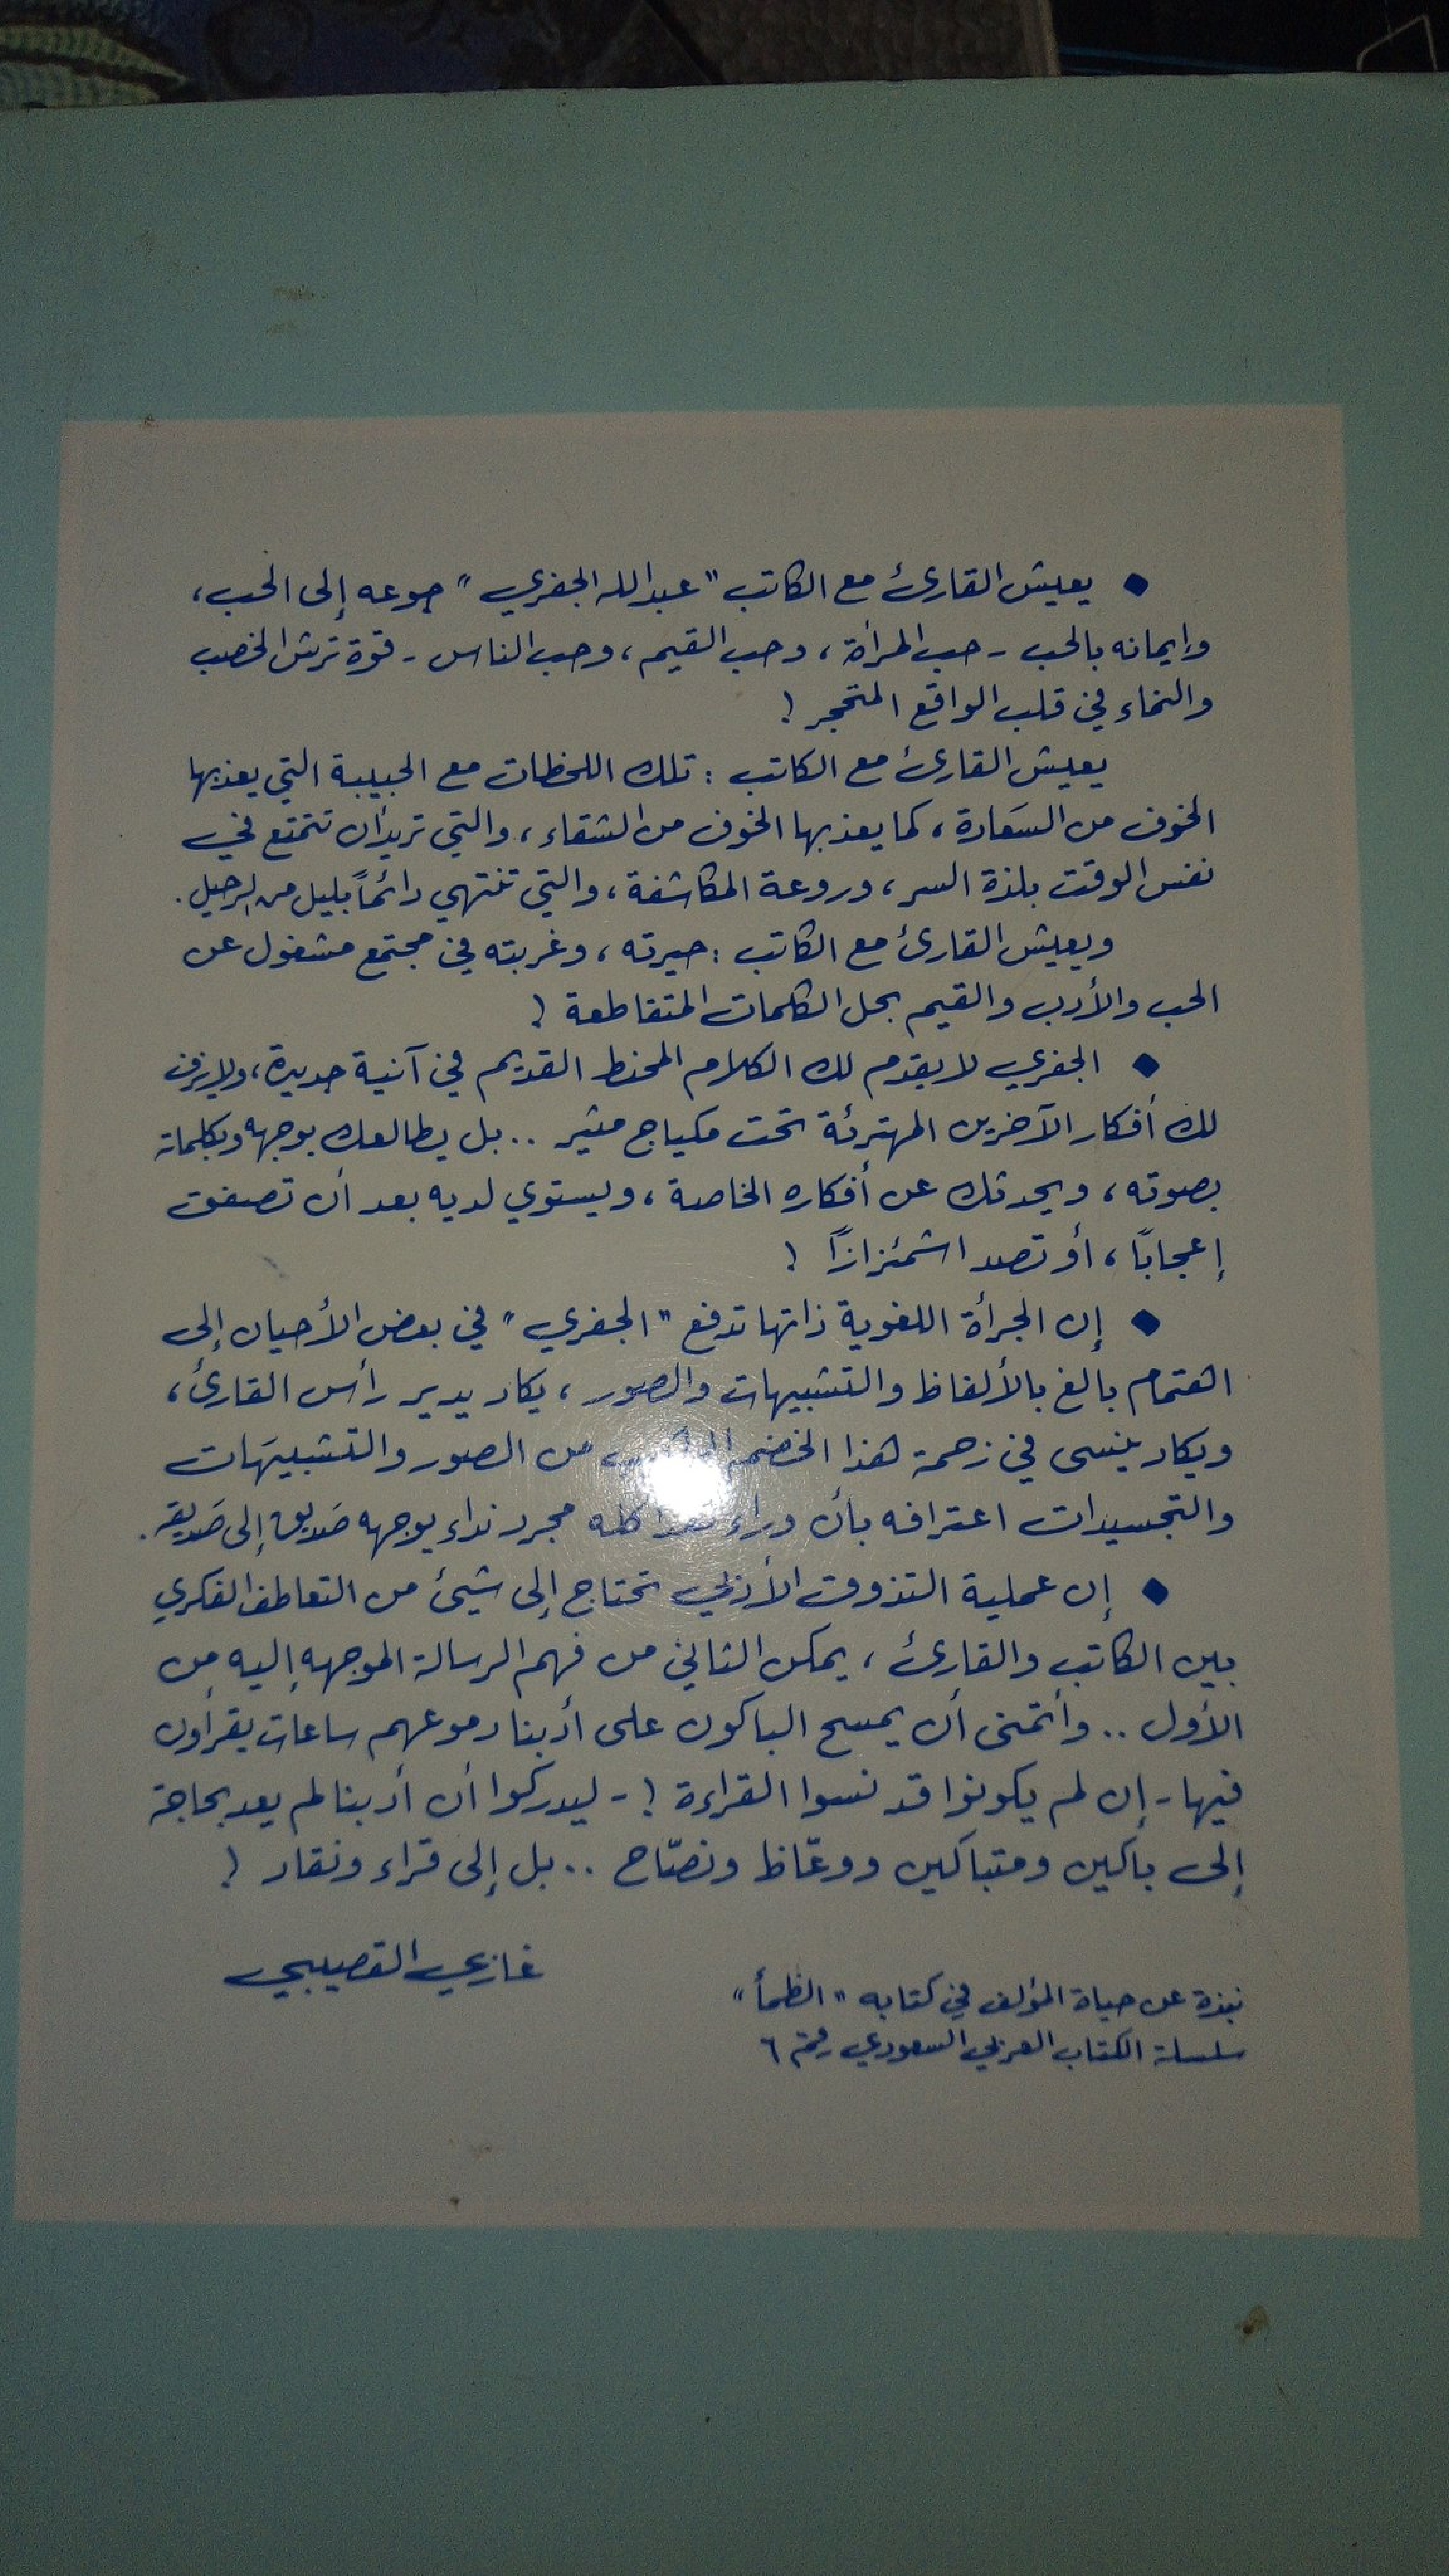 ◆ يعيش القارئ مع الكاتب "عبدالله الجفري" جوعه إلى الحب،
وإيمانه بالحب - حب المرأة، وحب القيم، وحب الناس - قوة ترش الخصب
والنماء في قلب الواقع المتحجر!
يعيش القارئ مع الكاتب : تلك اللحظات مع الحبيبة التي يعذبها
الخوف من السَعادة، كما يعذبها الخوف من الشقاء، والتي تريد أن تتمتع في
نفس الوقت بلذة السر، وروعة المكاشفة، والتي تنتهي دائماً بليل من الرحيل.
ويعيش القارئ مع الكاتب : حيرته، وغربته في مجتمع مشغول عن
الحب والأدب والقيم بحل الكلمات المتقاطعة!
◆ الجفري لا يقدم لك الكلام المحنط القديم في آنية جديدة، ولا يزف
لك أفكار الآخرين المهترئة تحت مكياج مثير .. بل يطالعك بوجهه وبكلماته
بصوته، ويحدثك عن أفكاره الخاصة، ويستوي لديه بعد أن تصفق
إعجابًا، أو تصد اشمئزازًا!
◆ إن الجرأة اللغوية ذاتها تدفع "الجفري" في بعض الأحيان إلى
اهتمام بالغ بالألفاظ والتشبيهات والصور، يكاد يدير رأس القارئ،
ويكاد ينسى في زحمة هذا الخضم من الصور والتشبيهَات
والتجسيدات اعترافه بأن وراء هذا كله مجرد نداء يوجهه صَديق إلى صَديقه.
◆ إن عملية التذوق الأدبي تحتاج إلى شيئ من التعاطف الفكري
بين الكاتب والقارئ، يمكن الثاني من فهم الرسالة الموجهه إليه من
الأول .. وأتمنى أن يمسح الباكون على أدبنا دموعهم ساعات يقرأون
فيها - إن لم يكونوا قد نسوا القراءة! - ليدركوا أن أدبنا لم يعد بحاجة
إلى باكين ومتباكين ووعّاظ ونصّاح .. بل إلى قراء ونقاد!
غازي القصيبي
نبذة عن حياة المؤلف في كتابه "الظمأ"
سلسلة الكتاب العربي السعودي رقم ٦